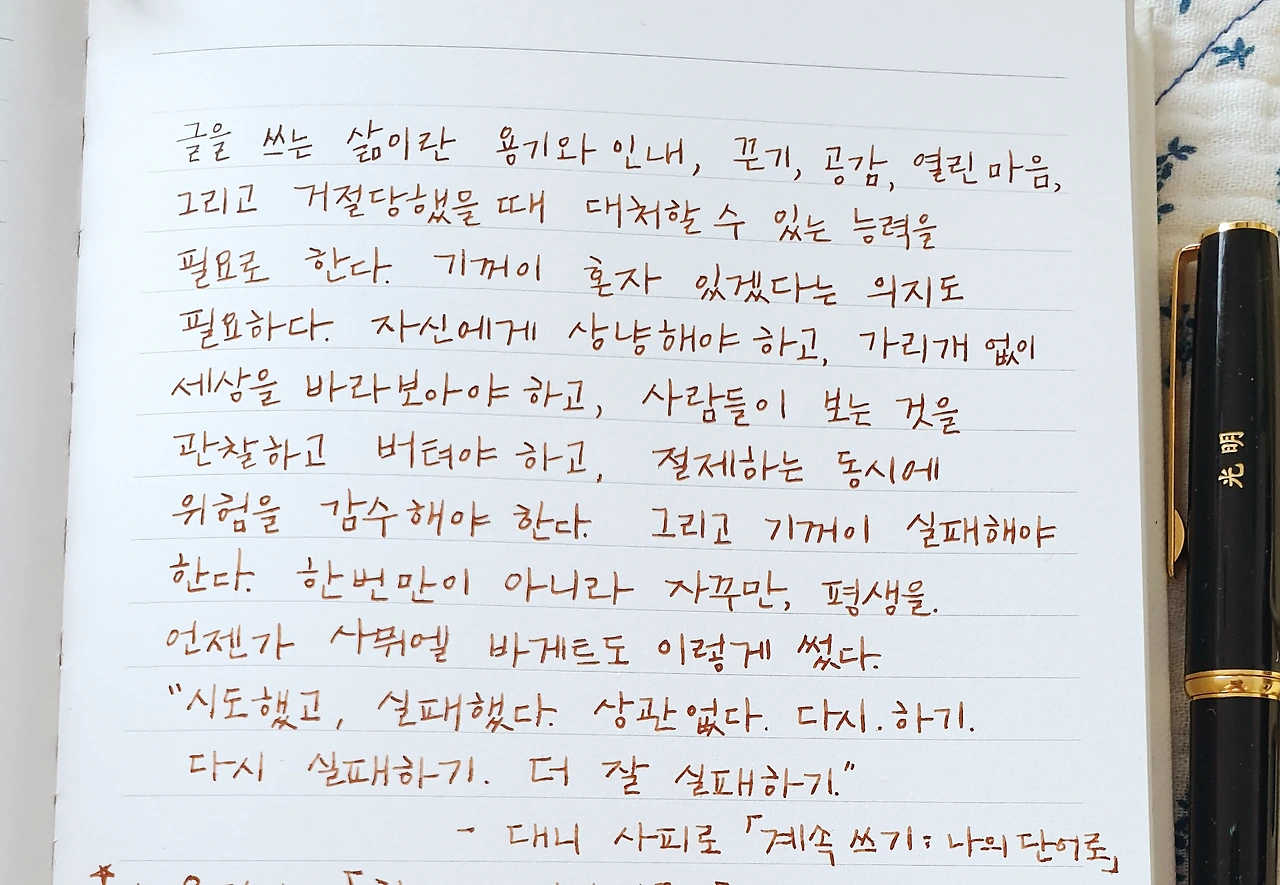 글을 쓰는 삶이란 용기와 인내, 끈기, 공감, 열린 마음,
그리고 거절당했을 때 대처할 수 있는 능력을
필요로 한다. 기꺼이 혼자 있겠다는 의지도
필요하다. 자신에게 상냥해야 하고, 가리개 없이
세상을 바라보아야 하고, 사람들이 보는 것을
관찰하고 버텨야 하고, 절제하는 동시에
위험을 감수해야 한다. 그리고 기꺼이 실패해야
한다. 한번만이 아니라 자꾸만, 평생을.
언젠가 사뮈엘 바게트도 이렇게 썼다.
"시도했고, 실패했다. 상관없다. 다시.하기.
다시 실패하기. 더 잘 실패하기."
- 대니 사피로 「계속 쓰기: 나의 단어로」
光明